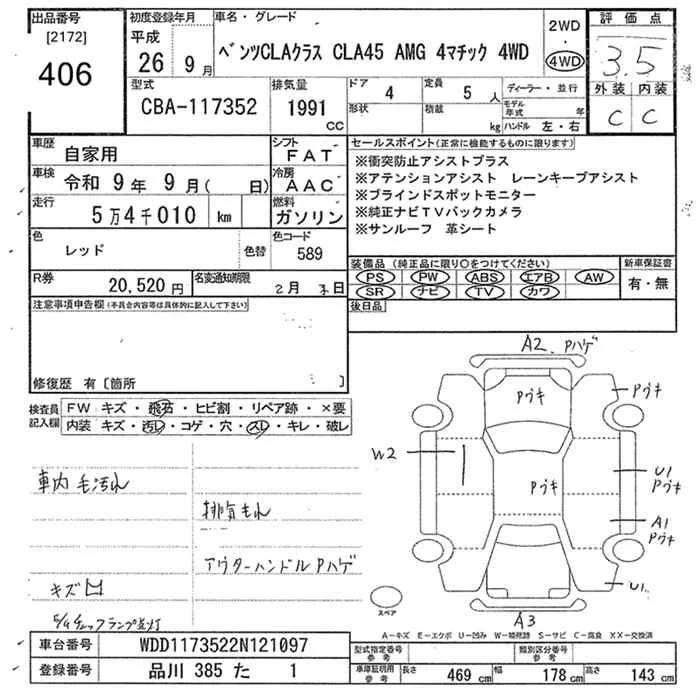 出品番号
[2172]
406
初度登録年月
平成
26 9月
車名・グレード
ベンツCLAクラス CLA45 AMG 4マチック 4WD
2WD
・
4WD
評価点
3.5
外装 内装
C C
型式
CBA-117352
排気量
1991
CC
ドア
4
定員
5 人
形状
積載
kg
ディーラー・並行
モデル年式 年
ハンドル 左・右
車歴
自家用
シフト
FAT
車検
令和 9年 9月( 日)
冷房
AAC
走行
5万4千010 km
燃料
ガソリン
色
レッド
色替
色コード
589
R券
20,520円
名変通知期限
2月 日
セールスポイント(正常に機能するものに限ります)
※衝突防止アシストプラス
※アテンションアシスト レーンキープアシスト
※ブラインドスポットモニター
※純正ナビTVバックカメラ
※サンルーフ 革シート
装備品(純正品に限り○をつけてください)
PS PW ABS エアB AW
SR ナビ TV カワ
新車保証書
有・無
後日品
注意事項申告欄(本具合内容等は具体的に記入して下さい)
修復歴 有〔箇所 〕
検査員記入欄
FW キズ・飛石・ヒビ割・リペア跡・×要
内装 キズ・汚レ・コゲ・穴・スレ・キレ・破レ
車内毛汚れ
排気もれ
アウターハンドルPハゲ
キズ凹
チェックランプ点灯
A2、Pハゲ
Pウキ
Pウキ
W2
Pウキ
U1
Pウキ
A1
Pウキ
U1
A3
スペア
A−キズ E−エクボ U−凹み W−補修跡 S−サビ C−腐食 XX−交換済
車台番号
WDD1173522N121097
登録番号
品川 385 た 1
型式指定番号
参考
類別区分番号
参考
車庫証明用参考
長さ 469 cm 幅 178 cm 高さ 143 cm